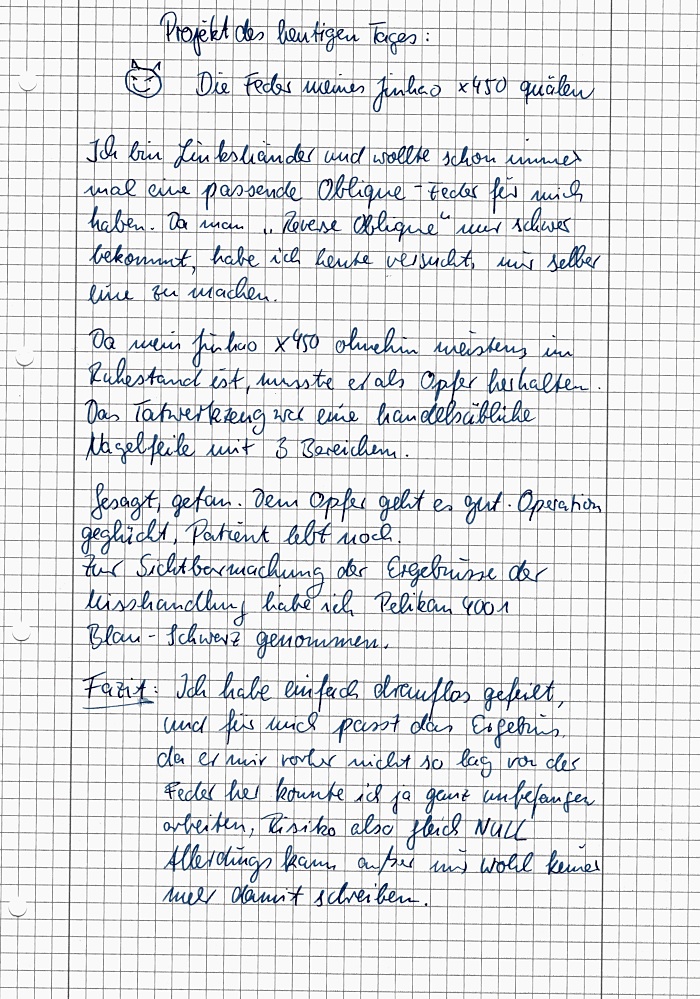 Projekt des heutigen Tages:
Die Feder meines Jinhao x450 quälen
Ich bin Linkshänder und wollte schon immer
mal eine passende Oblique-Feder für mich
haben. Da man „Reverse Oblique“ nur schwer
bekommt, habe ich heute versucht, mir selber
eine zu machen.
Da mein Jinhao x450 ohnehin meistens im
Ruhestand ist, musste er als Opfer herhalten.
Das Tatwerkzeug war eine handelsübliche
Nagelfeile mit 3 Bereichen.
Gesagt, getan. Dem Opfer geht es gut. Operation
geglückt, Patient lebt noch.
Zur Sichtbarmachung der Ergebnisse der
Misshandlung habe ich Pelikan 4001
Blau-Schwarz genommen.
Fazit: Ich habe einfach drauflos gefeilt,
und für mich passt das Ergebnis.
da er mir vorher nicht so lag von der
Feder her konnte ich ja ganz unbefangen
arbeiten, Risiko also gleich NULL
Allerdings kann außer mir wohl keiner
mer damit schreiben.